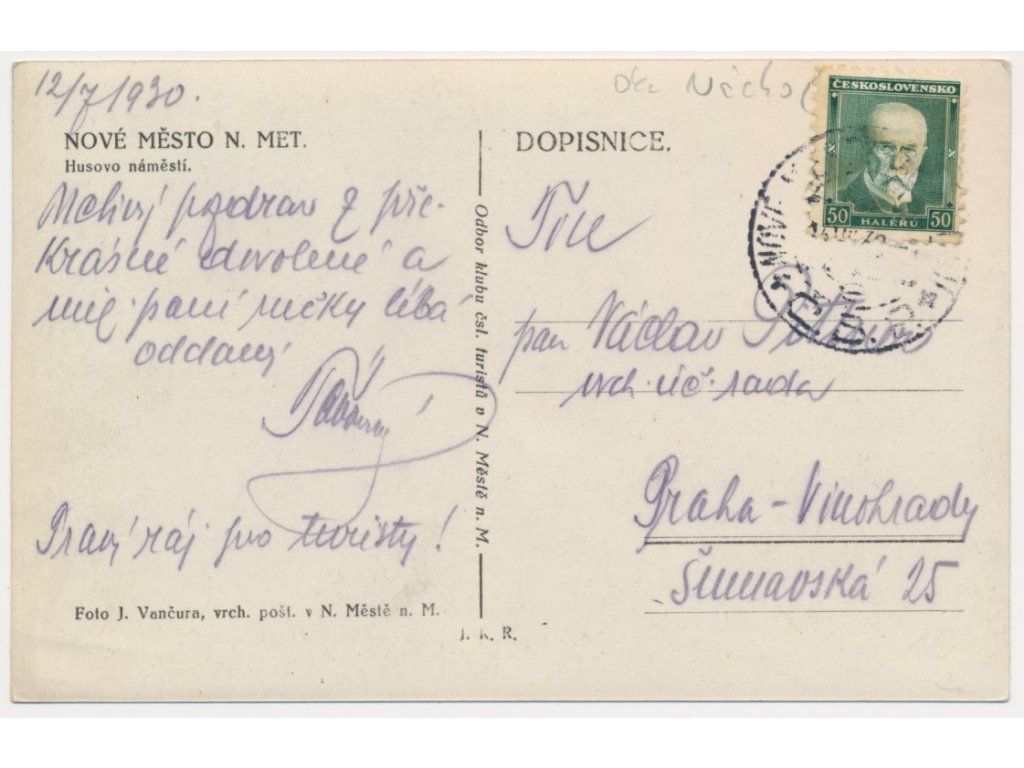 12/7 1930.
NOVÉ MĚSTO N. MET.
Husovo náměstí.
pozdrav z pře-
krásné dovolené a
paní ručky líbá
oddaný
Pravý ráj pro turisty!
Foto J. Vančura, vrch. pošt. v N. Městě n. M.
Odbor klubu čsl. turistů v N. Městě n. M.
J. K. R.
DOPISNICE.
ČESKOSLOVENSKO
50 HALÉŘŮ 50
pan Václav
vrch. úč. rada
Praha - Vinohrady
Šumavská 25